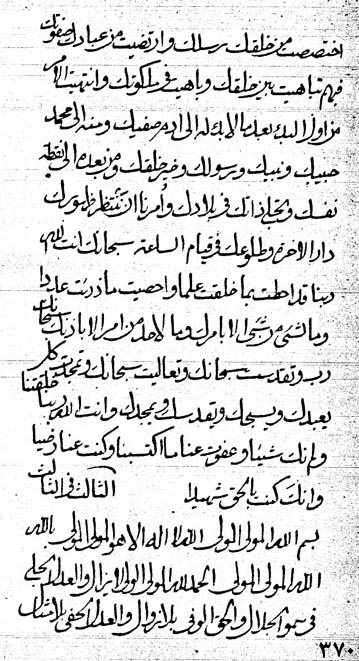 اختصصت من خلقك برسلك وارتضيت من عبادك اصفوتك
فبهم تباهيت بين خلقك وباهيت في ملكوتك وانتهيت الامر
من اول البديع الى ادم صفيك ومنه الى محمد
حبيبك ونبيك ورسولك وخير خلقك ومن بعده الى نقطة
نفسك وتجلى ذاتك في بلادك وأمرنا ان ننتظر ظهورك
دار الاخرة وطلوعك في قيام الساعة سبحانك انت اللهم
ربنا قد احطت بما خلقت علما واحصيت ما ذرئت عددا
وما لشئ من شئ الا بامرك وما لاحد من امر الا باذنك سبحانك
رب وتقدست سبحانك وتعاليت سبحانك وتمجدت كل
يعبدك ويسبحك ويقدسك ويمجدك وانت الله ربنا خلقتنا
ولم نك شيئا وعفوت عنا ما اكتسبنا وكنت عنا رضيا
وانك كنت بالحق شهيدا الثالث في الثالث
بسم الله المولى المولى الله لا اله الا هو المولى المولى بالله
الله المولى المولى الحمد لله المولى المولى الا يزال والعدل الجلي
في سمو الجلال والحق الوفي بلا زوال والعدل الخفي بلا
٣٧٠